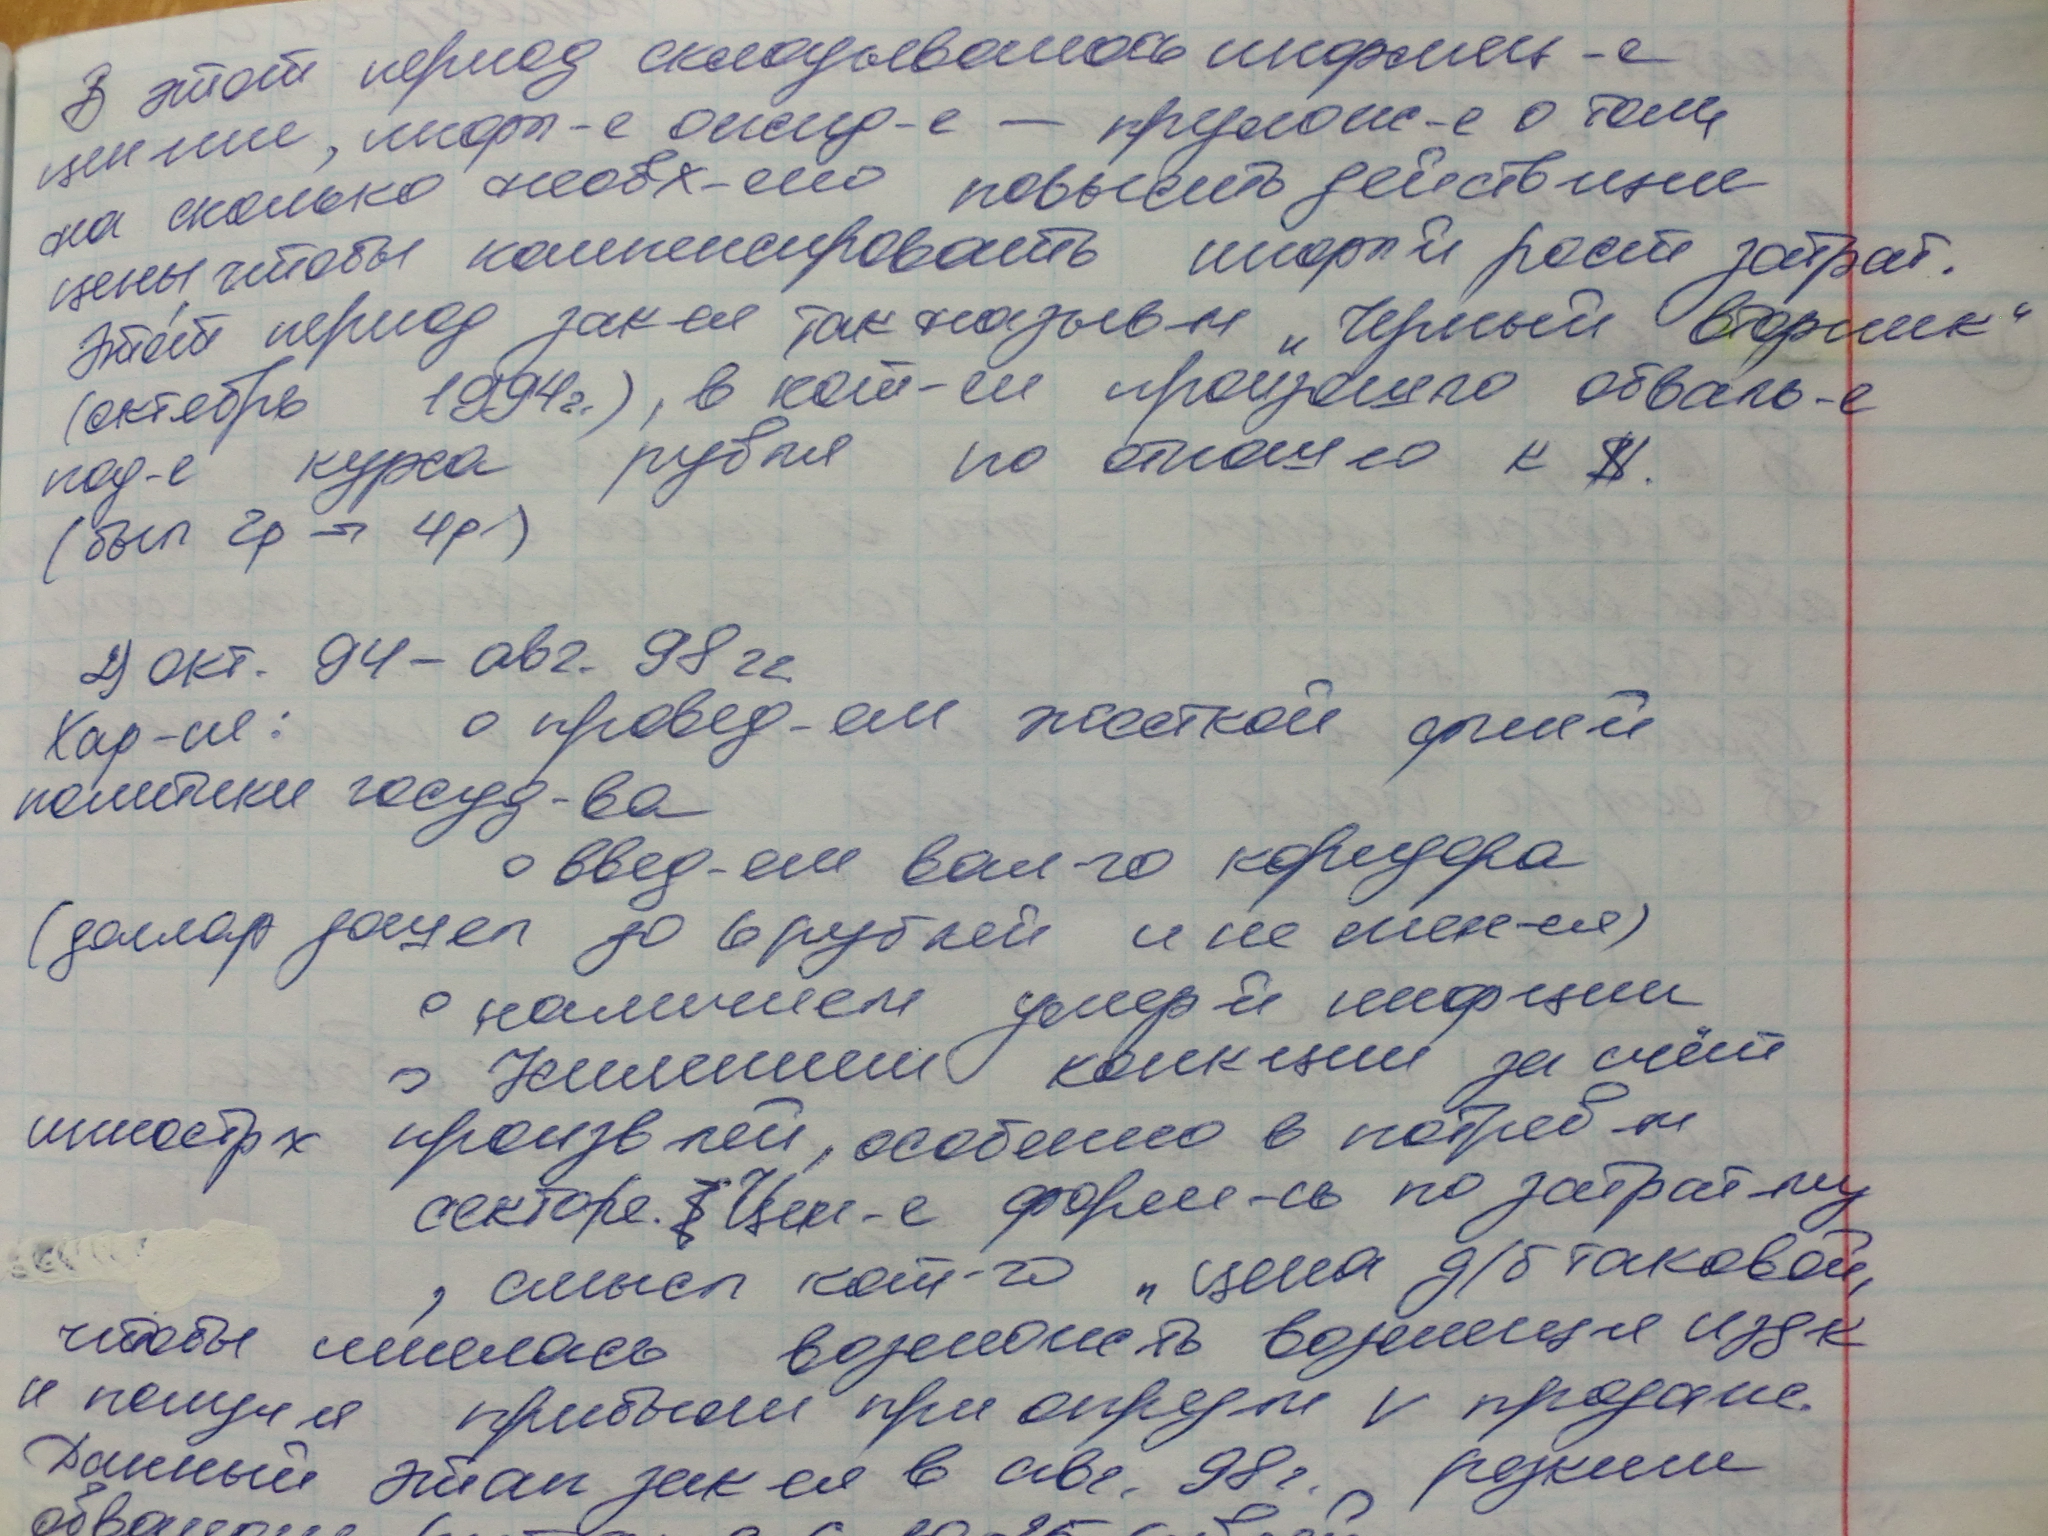 В этот период складывалось информац-е
цен-ие, инфл-е ожид-е — предлож-е о том,
на сколько необх-мо повысить действ щие
цены, чтобы компенсировать инфл й рост затрат.
Этот период зак-ся так называ-м „Черный вторник“
(октябрь 1994г.), в кот-м произошло обваль-е
пад-е курса рубля по отнош ю к $.
(был 2р → 4р)
2) окт. 94 – авг. 98 гг.
Хар-ся: о провед-ем жесткой ф й
политики госуд-ва
о введ-ем вал-го коридора
(доллар дошел до 6 рублей и не мен-ся)
о наличием умер й инф ции
о Усилением конк ции за счёт
иностр х произв лей, особенно в потреб м
секторе. Цен-е форм-сь по затрат-му
, смысл кот-го „цена д/б таковой,
чтобы имелась возможность возмещ я изд к
и получ я прибыли при опред м V продаж.
Данный этап зак ся в авг. 98г. резким